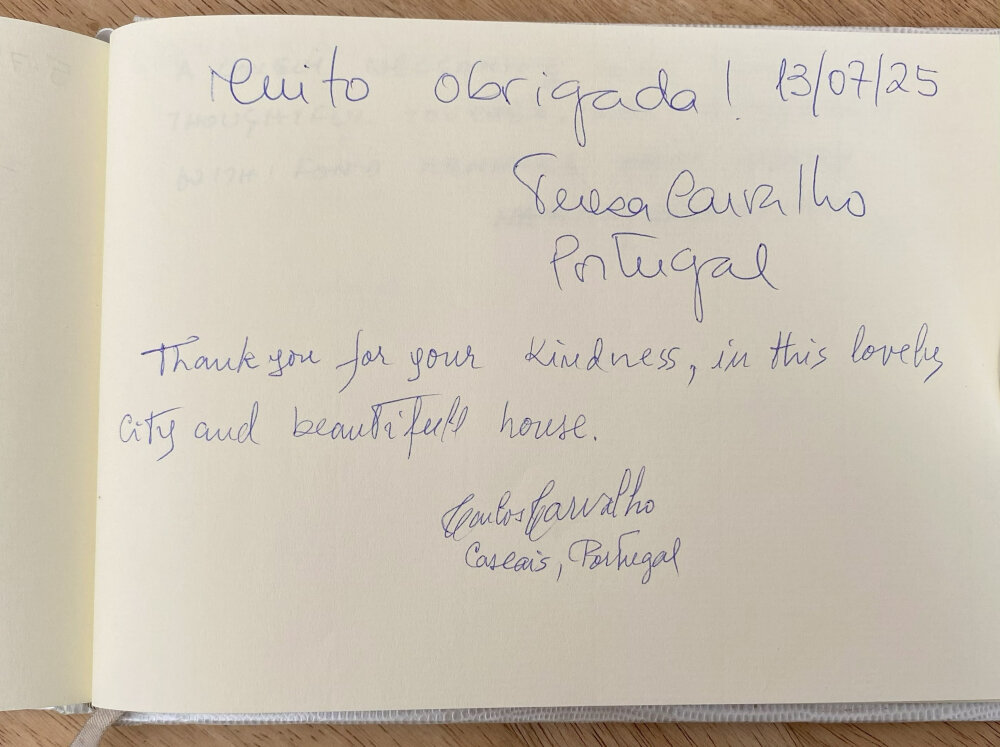 Muito obrigada! 13/07/25
Teresa Carvalho
Portugal
Thank you for your kindness, in this lovely
city and beautifull house.
Carlos Carvalho
Cascais, Portugal